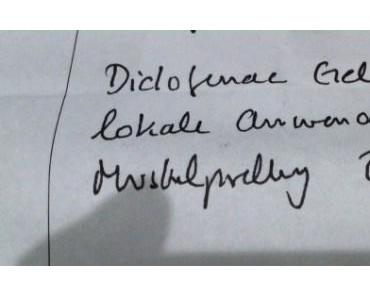 Diclofenac Gel
lokale Anwend
Muskelprellung